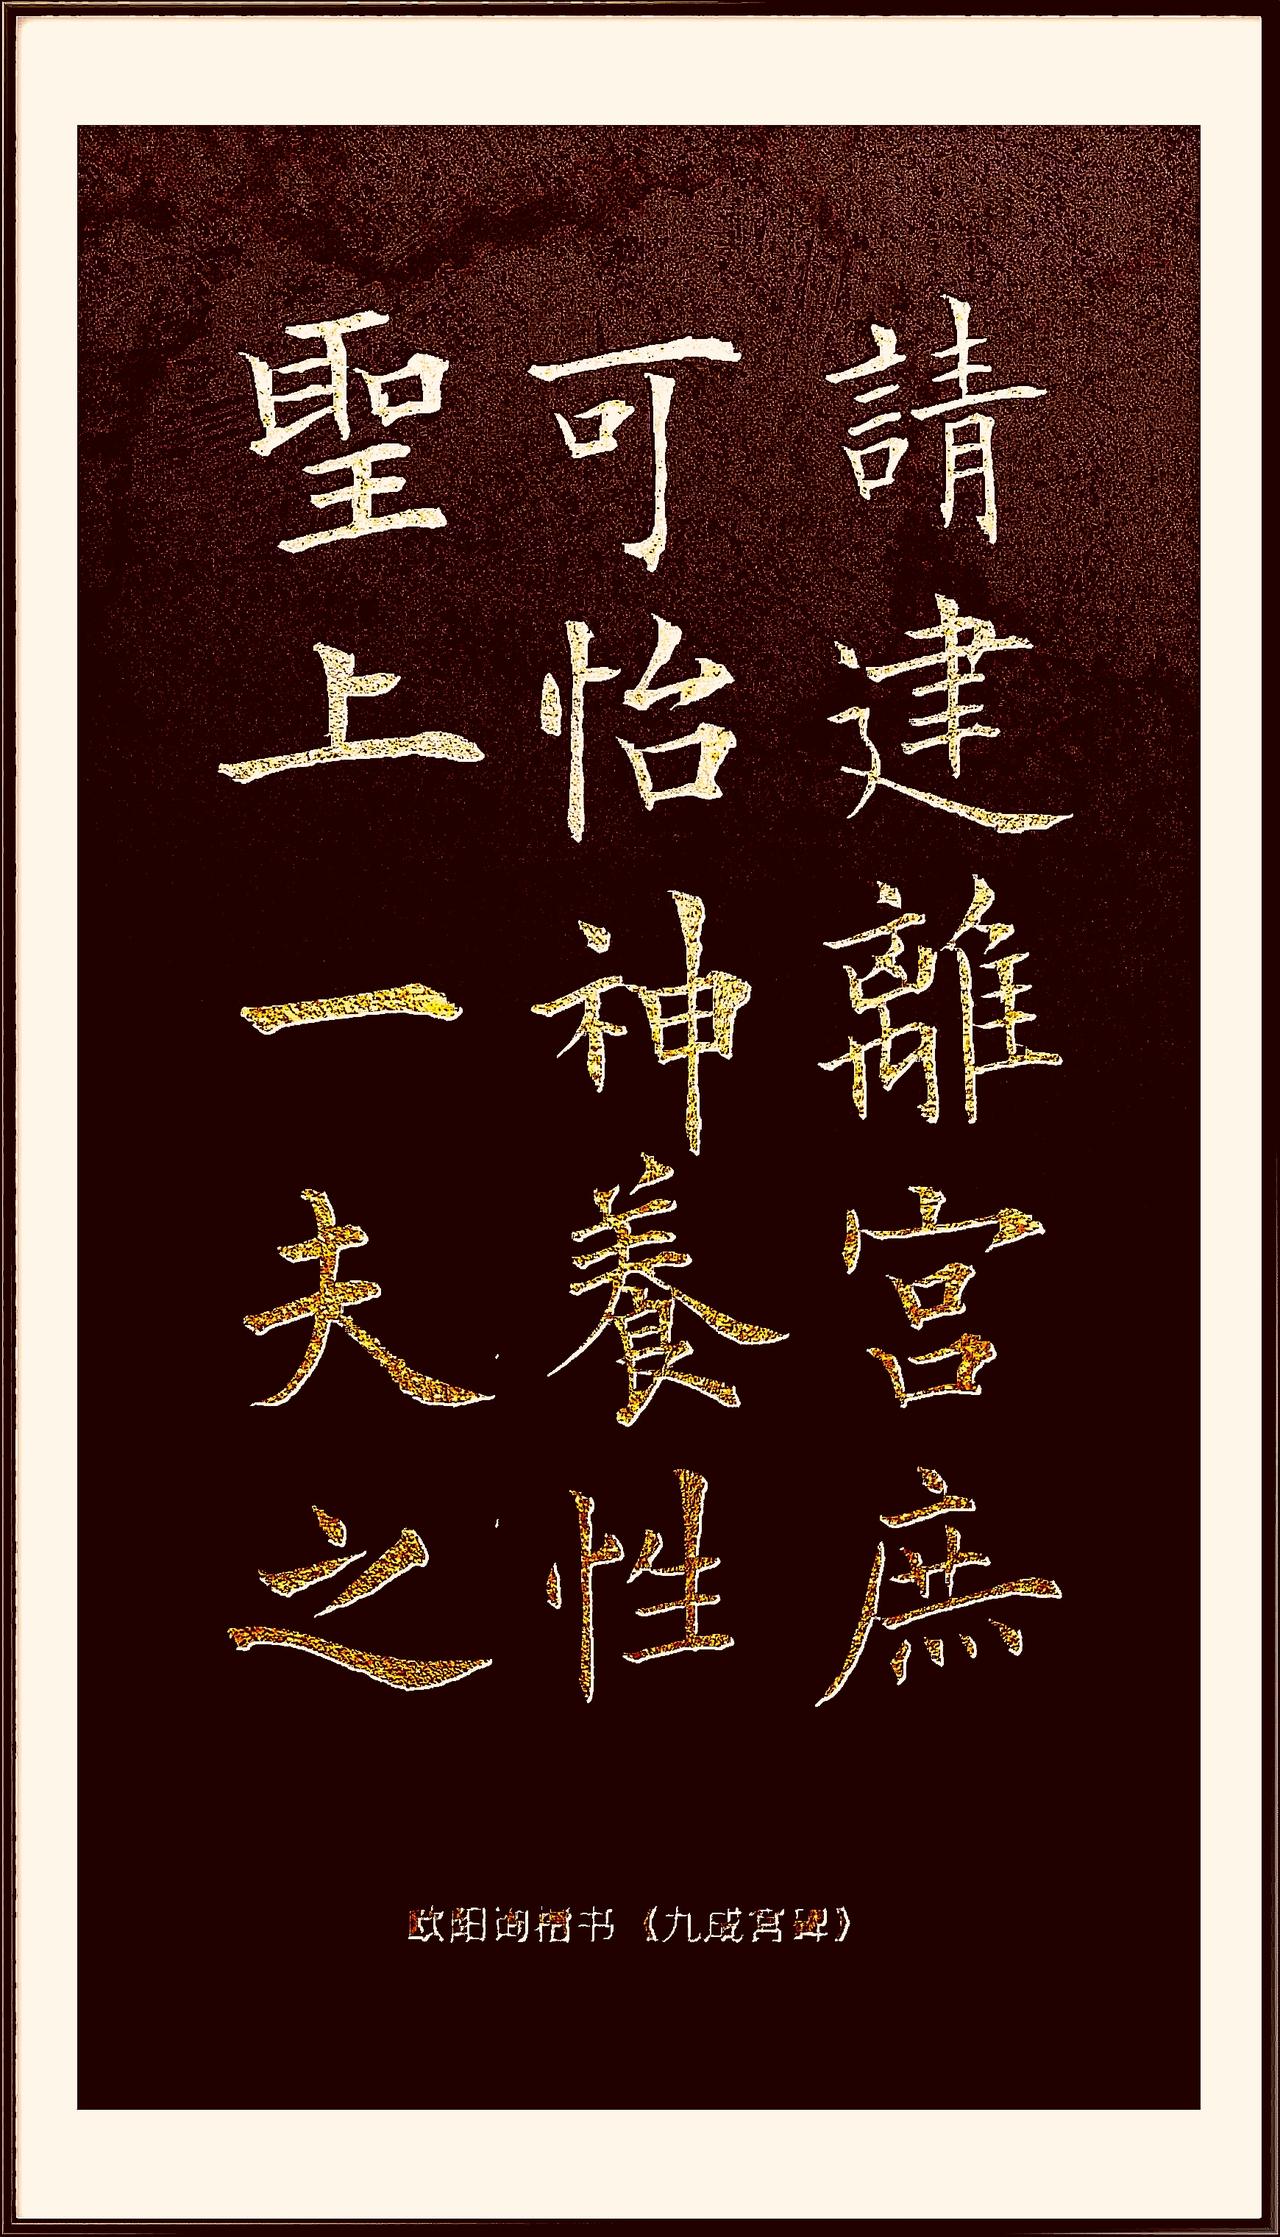 請建離宮庶
可怡神養性
聖上一夫之
欧阳询楷书《九成宫碑》